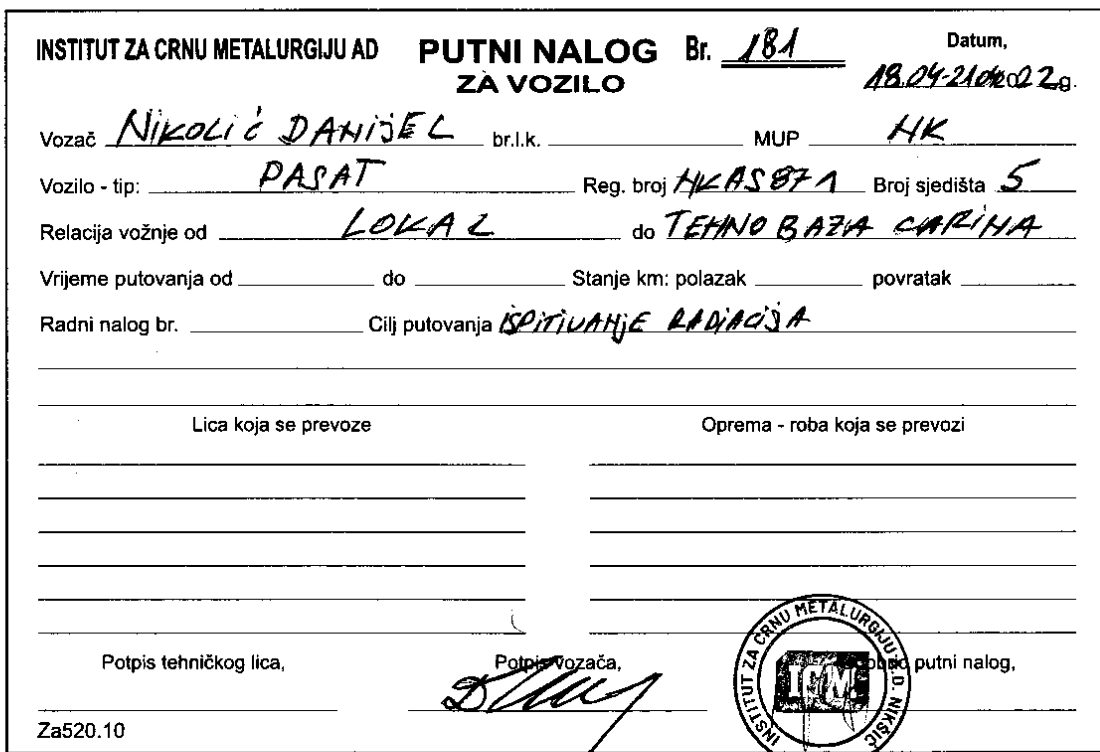 INSTITUT ZA CRNU METALURGIJU AD PUTNI NALOG Br. 181 Datum,
ZA VOZILO 18.04-21.04.2022g.
Vozač NIKOLIĆ DANIJEL br.l.k. MUP NK
Vozilo - tip: PASAT Reg. broj NKAS871 Broj sjedišta 5
Relacija vožnje od LOKAL do TEHNOBAZA CARINA
Vrijeme putovanja od do Stanje km: polazak povratak
Radni nalog br. Cilj putovanja ISPITIVANJE RADIACIJA
Lica koja se prevoze Oprema - roba koja se prevozi
Potpis tehničkog lica, Potpis vozača, putni nalog,
INSTITUT ZA CRNU METALURGIJU A.D. NIKŠIĆ
ICM
Za520.10